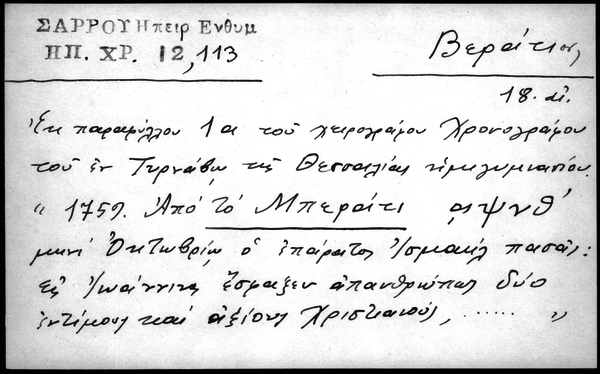 ΣΑΡΡΟΥ Ηπειρ Ενθυμ
ΗΠ. ΧΡ. 12,113
Βεράτιον
18. αἰ.
Ἐκ παραφύλλου 1α τοῦ χειρογράφου Χρονογράφου
τοῦ ἐν Τυρνάβῳ τῆς Θεσσαλίας ἡμιγυμνασίου.
" 1759. Ἀπὸ τὸ Μπεράτι αψνθ'
μηνὶ Ὀκτωβρίῳ ὁ ἐπάρατος Ἰσμαὴλ πασᾶς:
εἰς Ἰωάννινα ἔσφαξεν ἀπανθρώπως δύο
ἐντίμους καὶ ἀξίους Χριστιανούς, ...... "